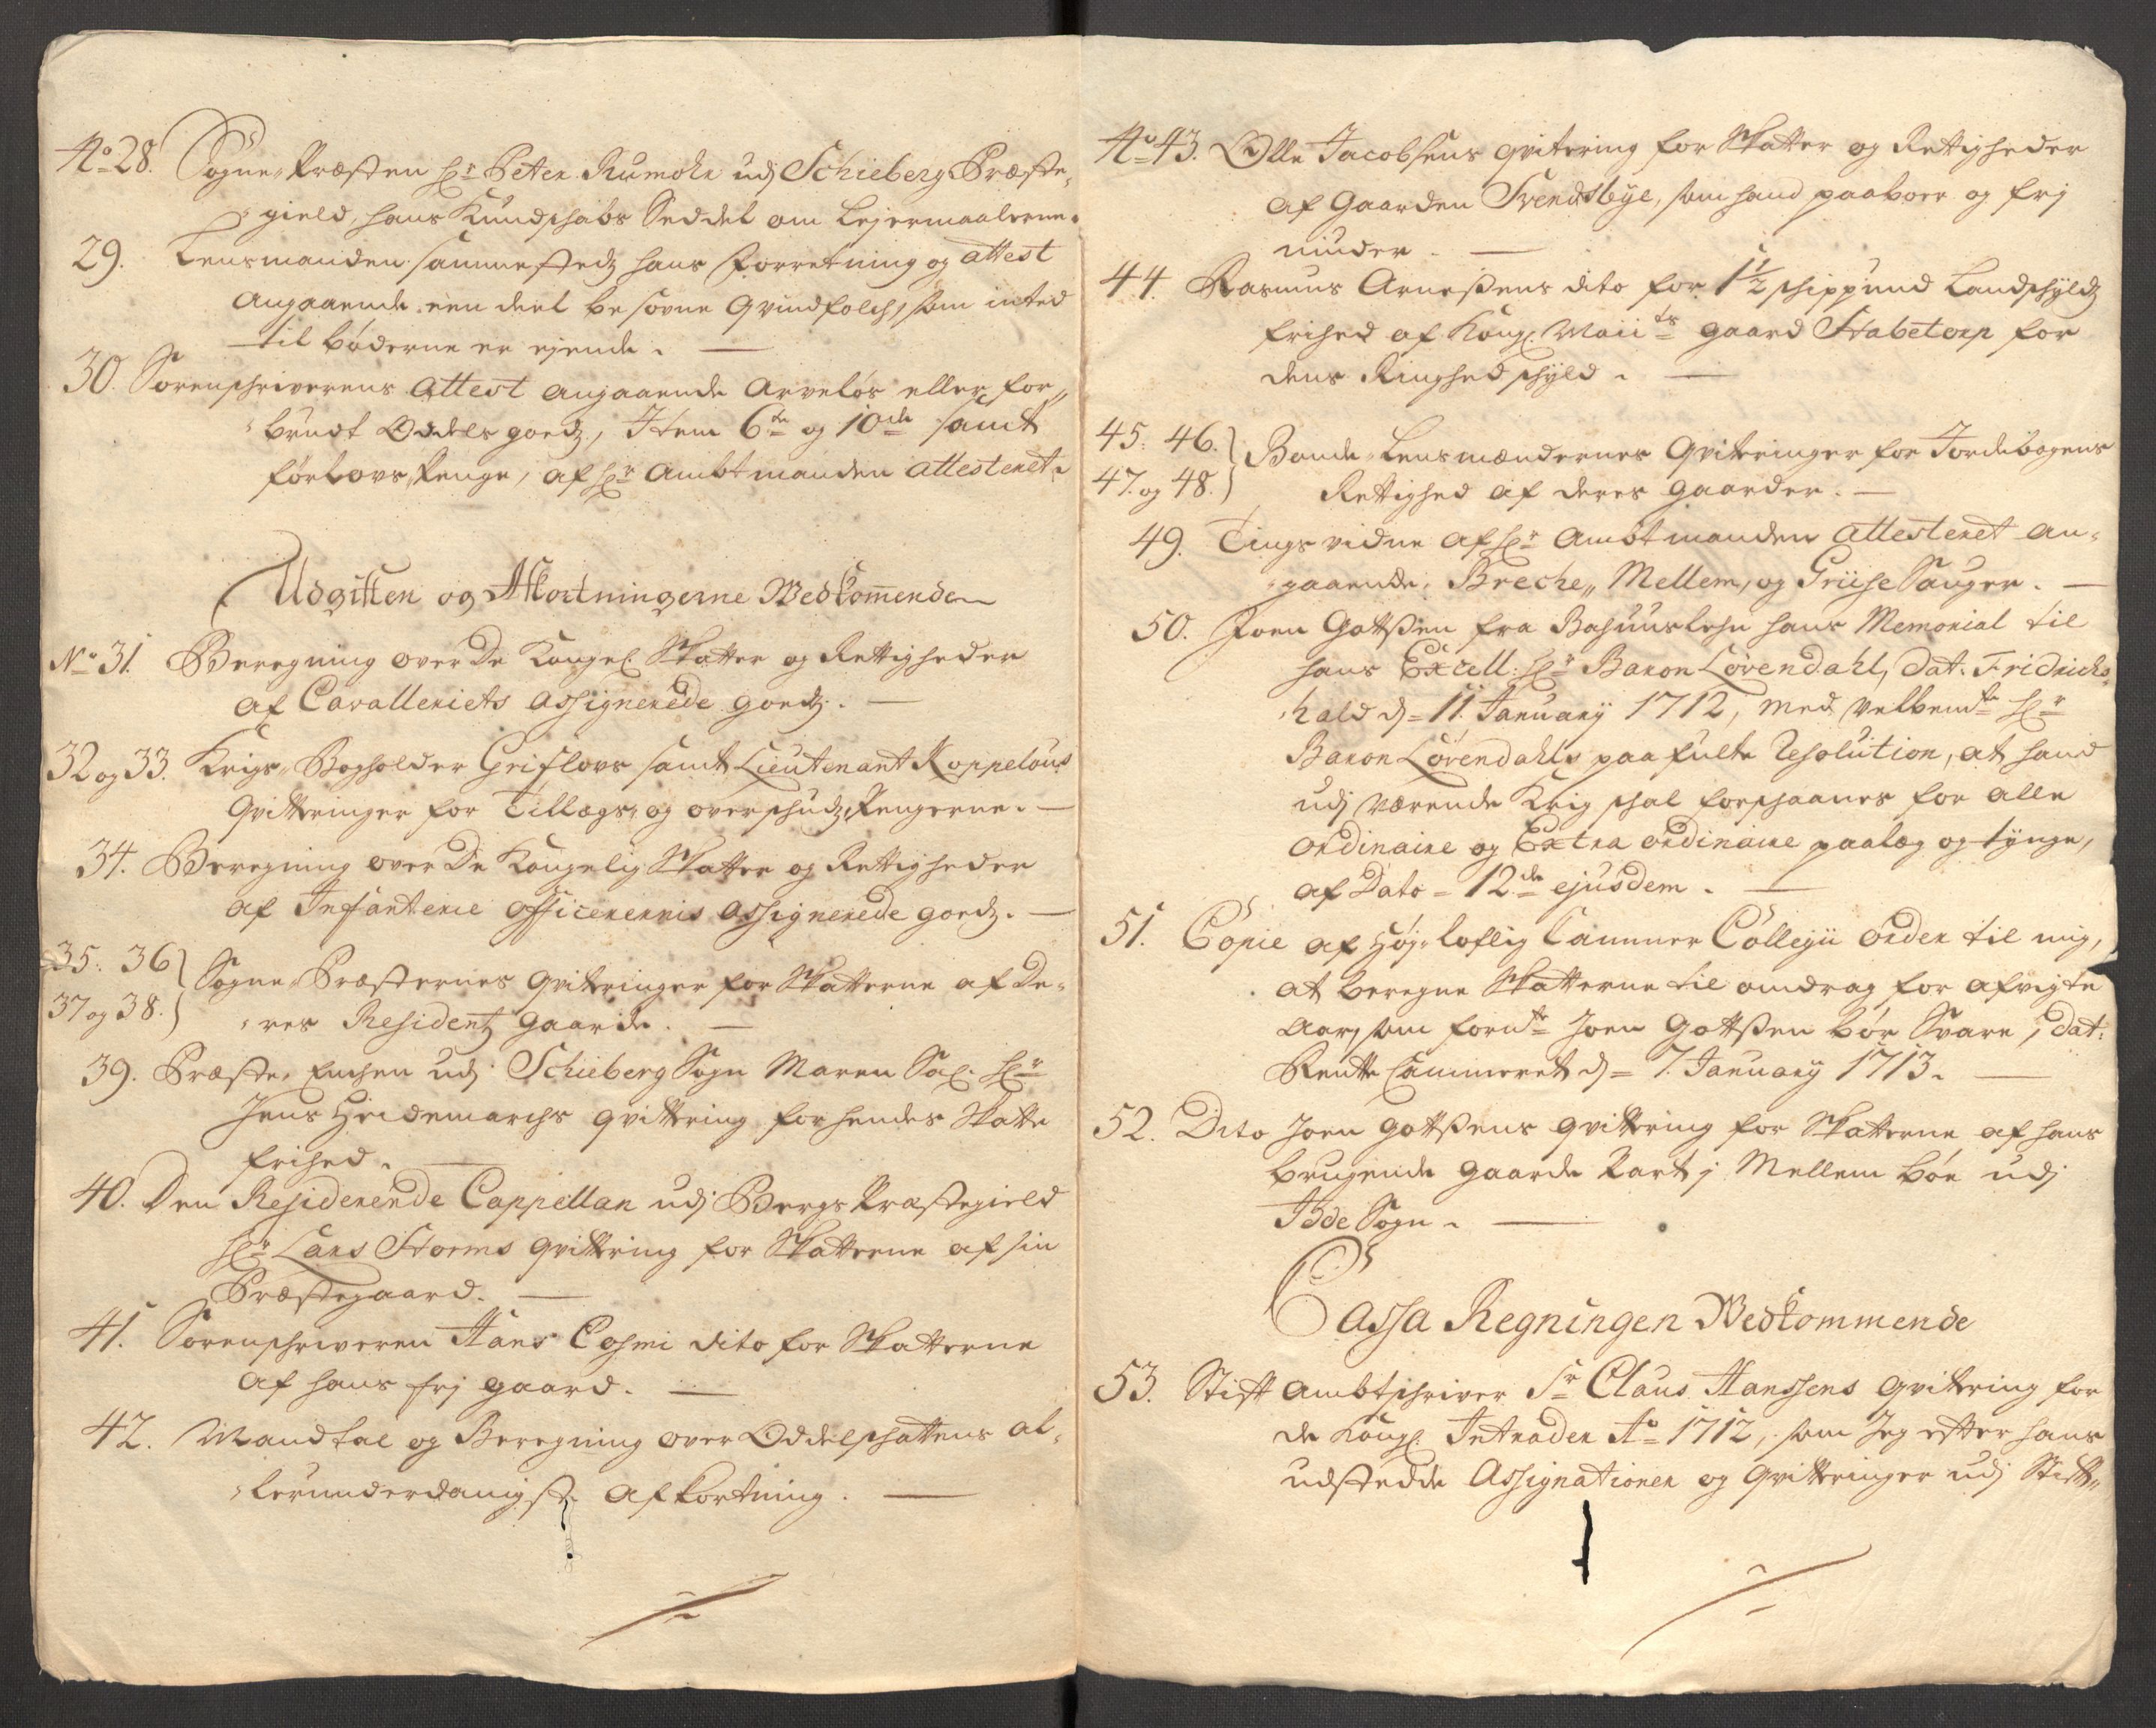 No 28. Sogne-Præsten hr Peter Rumohr udj Schieberg Præste-
gield, hans Kundskabs Seddel om Lejermaalerne.
29. Lensmanden sammestedz hans Forretning og attest
angaaende een deel besovne Qvindfolch, som inted
til bøderne er ejende.
30. Sorenschriverens attest angaaende arveløs eller for-
brudt Oddels goedz, Item 6te og 10de samt
førlovs Penge, af hr ambtmanden attesteret.
Udgiften og Afkortningerne Wedkommende
No 31. Beregning over De Kongel. Skatter og Rettigheder
af Cavalleriets assignerede goedz.
32 og 33. Krigs-Bogholder Griflovs samt Lieutenant Koppelous
Qvitteringer for Tillægs, og overskudz Pengerne.
34. Beregning over De Kongelig Skatter og Rettigheder
af Infanterie officerernis assignerede goedz.
35. 36
37 og 38. Sogne-Præsternes Qvitteringer for Skatterne af De-
res Residentz gaarde.
39. Præste-Enchen udj Schieberg Sogn Maren Sal. hr
Jens Heidemarchs qvittering for hendes Skatte
frihed.
40. Den Residerende Cappellan udj Bergs Præstegield
hr Lars Storms qvittering for Skatterne af sin
Præstegaard.
41. Sorenschriveren Hans Cosmi dito for Skatterne
af hans frj gaard.
42. Mandtal og Beregning over Oddelskattens al-
lerunderdanigst. afkortning.
No 43. Olle Jacobsens qvitering for Skatter og Rettigheder
af Gaarden Svendsbye, som hand paaboer og frj
niuder.
44. Rasmus Arnesens dito for 1½ schippund Landschyldz
frihed af Kongl. Maiits gaard Stabetorp for
dens Ringhed schyld.
45. 46.
47. og 48. Bonde-Lensmændernes Qvitteringer for Jordebogens
Rettighed af deres gaarder.
49. Tingsvidne af hr Ambtmanden attesteret an-
gaaende, Breche, Mellem, og Griise Sauger.
50. Joen Gottsen fra Bahuuslehn hans Memorial til
hans Excell: hr Baron Løvendahl, dat. Fridrichs-
hald d= 11. January 1712, med velbemte hr
Baron Løvendahls paafulte Resolution, at hand
udj værende Krig schal forschaanes for alle
ordinaire og Extra ordinaire paalæg og tynge,
af Dato = 12de ejusdem.
51. Copie af Høj-loflig Cammer Collegii order til mig,
at beregne Skatterne til andrag for afvigte
aar, som fornte Joen Gottsen bør Svare, dat:
Rente Cammeret d= 7. January 1713.
52. Dito Joen Gottsens qvittering for Skatterne af hans
brugende gaarde Part j Mellem Bøe udj
Idde Sogn.
Cassa Regningen Wedkommende
53. Stift ambtschriver Sr Claus Hanssens qvittering for
de Kongl. Intrader Ao 1712, som Jeg efter hans
udstedde Assignationer og Qvitteringer udj Stift-